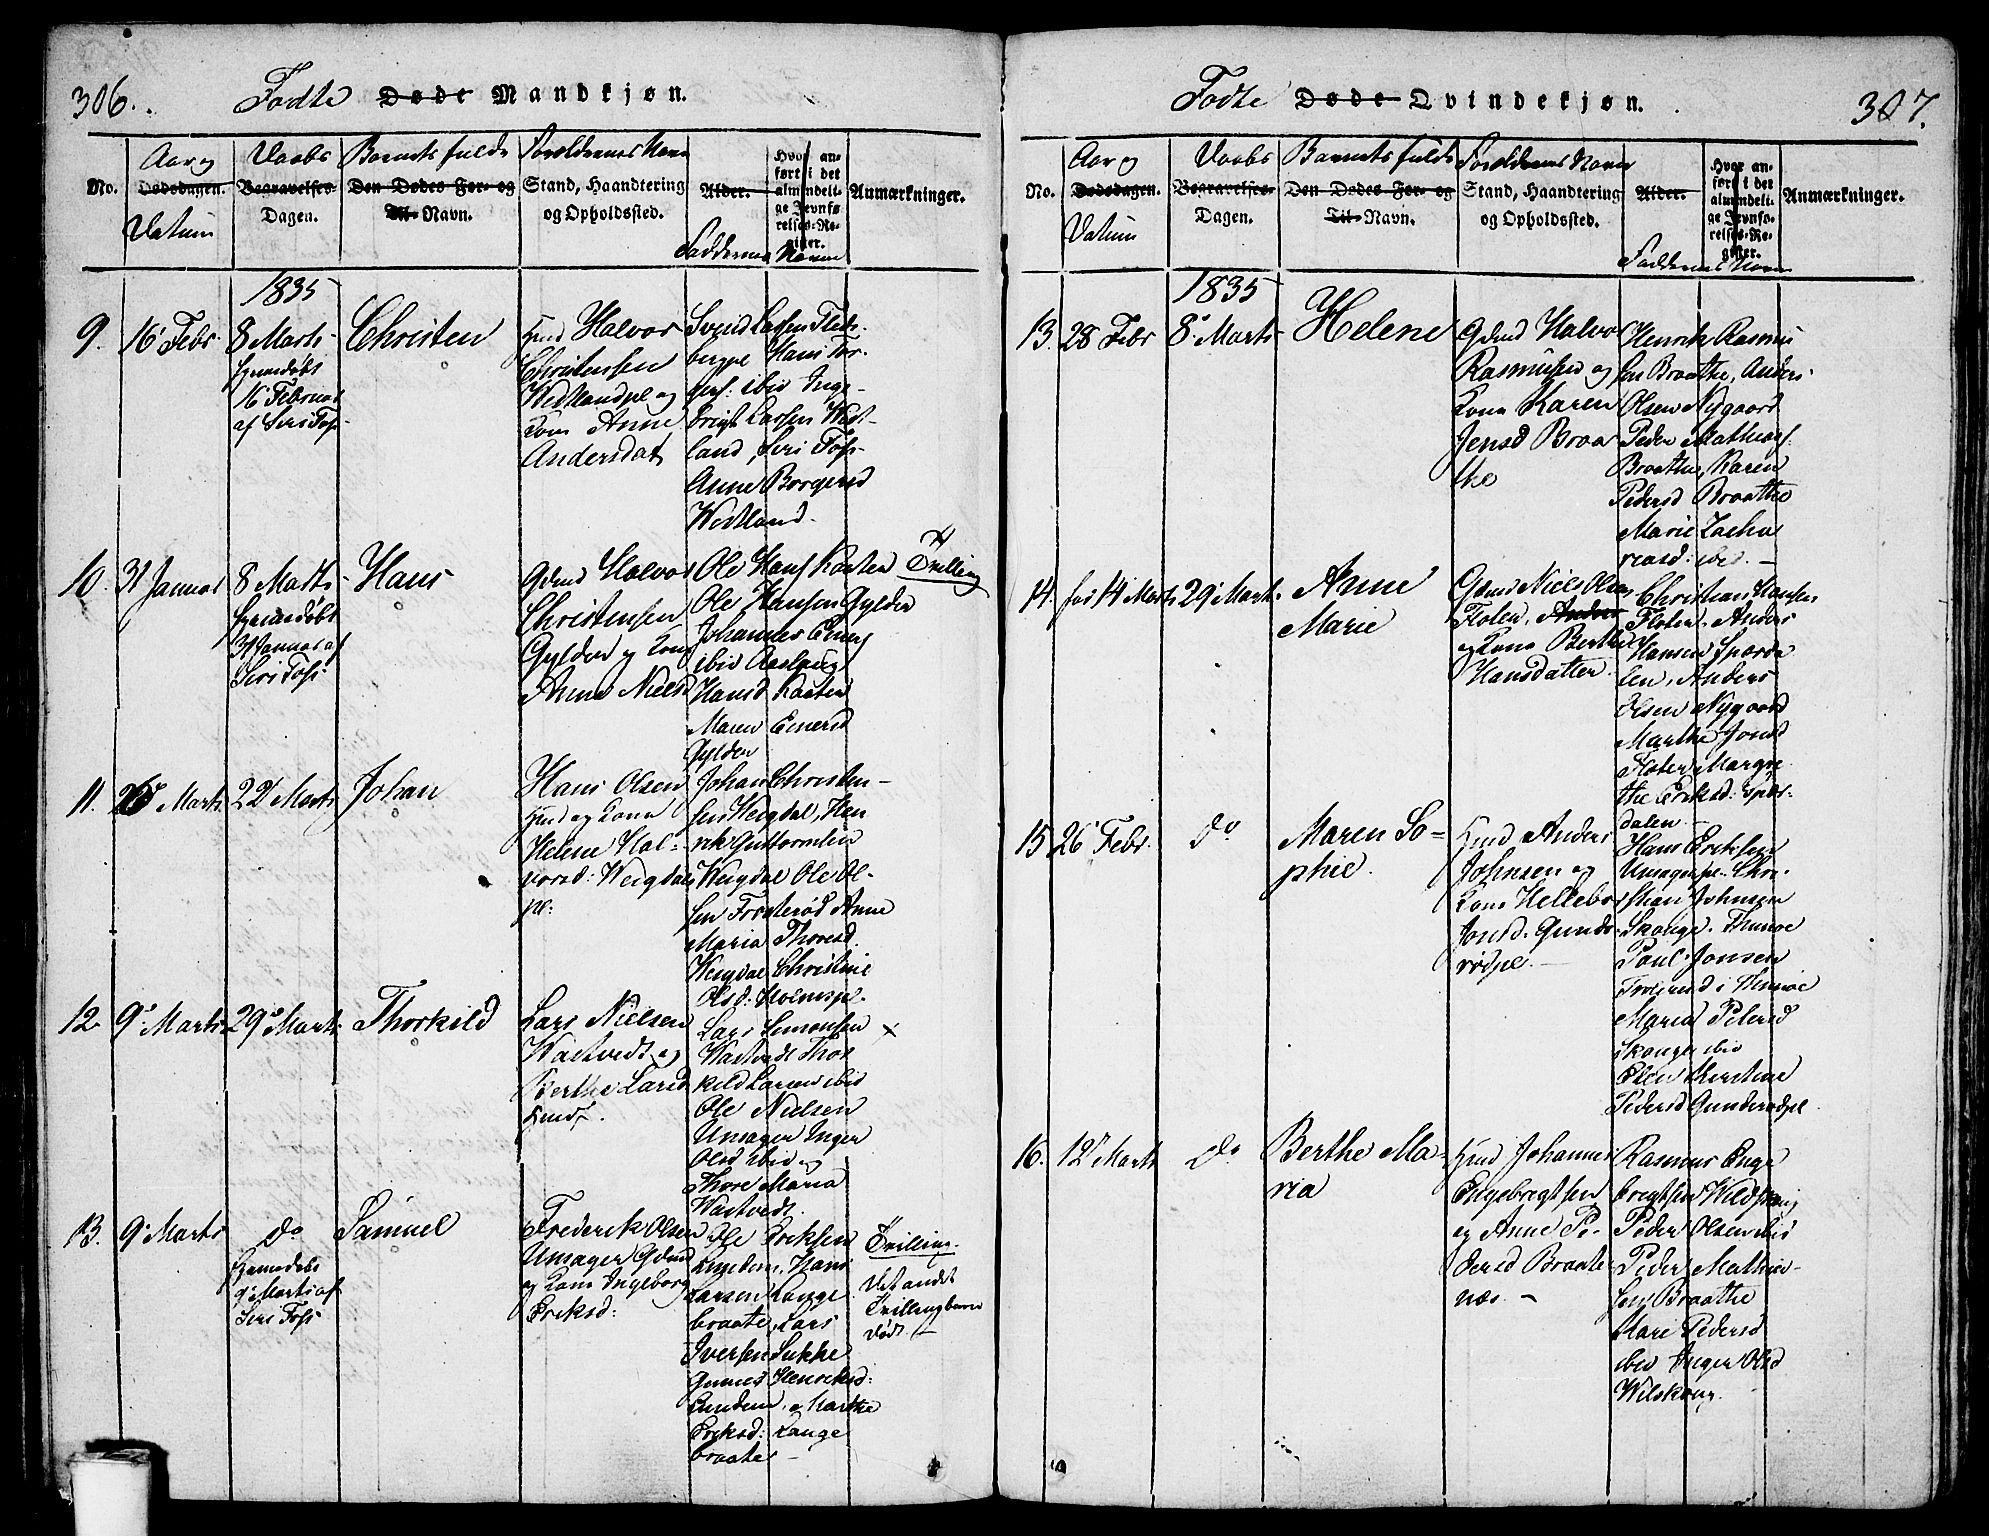 306.
Fødte Døde Mandkjøn.
No.
Aar og
Dødsdagen.
Datum
Daabs
Begravelses-
Dagen.
Barnets fulde
Den Dødes For- og
Til- Navn.
Forældrenes Navn
Stand, Haandtering
og Opholdssted.
Alder.
Hvor an-
ført i det
almindeli-
ge Jevnfø-
relses-Re-
gister.
Faddernes Navne
Anmærkninger.
1835
9.
16 Febr
8 Marts
hjemdøbt
16 Februar
af Siri Foss
Christen
Halvor
Christensen
Westlandpl og
Kone Anne
Andersdat
Svend Larsen
Ingebrigt Larsen West-
land, Siri Foss
Anne Borgersd
Westland
10.
31 Januar
8 Marts
hjemdøbt
31 Januar af
Siri Foss
Hans
Gdmd Halvor
Christensen
Gylder og Kone
Anne Nielsd
Ole Hans Kaaten
Ole Hansen Gylder
Johannes Einers
ibid Aaslaug
Hansd Kaaten
Maren Einersd
Gylder
Tvilling
11.
Marts
22 Marts
Johan
Hans Olsen
Hmd og Kone
Helene Hal-
vorsd: Weigdals
pl:
Johan Christen-
sen Weigdal, Hen
rik Guttormsen
Weigdal Ole Ol-
sen Frøsterød Anne
Maria Thoresd.
Weigdal Christine
Olsd: Holmspl.
12.
9 Marts
29 Marts
Thorkild
Lars Nielsen
Wastvedt og
Berthe Larsd
Lars Simonsen
Wastvedt Thor
kild Larsen ibid
Ole Nielsen
Unsager Inger
Olsd ibid og
Thore Maria
Wastvedt.
13.
9 Marts
do
hjemdøbt
9 Marts af
Siri Foss
Samuel
Frederik Olsen
Unsager Gdmd
og Kone Ingeborg
Eriksd:
Ole Eriksen
Hans
Larsen Lange
braate, Lars
Iversen Sukke
Henriksd:
og Marthe
Eriksd: Lange
braate
Tvilling.
Det andet
Tvillingbarn
død.
307.
Fødte Døde Qvindekjøn.
No.
Aar og
Dødsdagen.
Datum
Daabs
Begravelses-
Dagen.
Barnets fulde
Den Dødes For- og
Til- Navn.
Forældrenes Navn
Stand, Haandtering
og Opholdssted.
Alder.
Hvor an-
ført i det
almindeli-
ge Jevnfø-
relses-Re-
gister.
Faddernes Navne
Anmærkninger.
1835
13.
28 Febr
8 Marts
Helene
Gdmd Halvo
Rasmusen og
Kone Karen
Jensd Braa
the
Henrik Rasmu
sen Braathe, Anders
Olsen Nygaard
Peder Mathias
Braathe, Karen
Pedersd Braathe
Marie Zacha
riasd: ibid.
14.
14 Marts
29 Marts
Anne
Marie
Gdmd Niels Olsen
Floten, Anders
og Kone Berthe
Hansdatter
Christian Hansen
Floten. Anders
Hansen Spærda
len, Anders
Olsen Nygaard
Marthe Jonsd
Floten Margre
the Eriksd: Spær-
dalen
15
26 Febr.
do
Maren So-
phie.
Hmd Anders
Johnsen og
Kone Hellebor
Jonsd. Gunde-
rødpl.
Hans Eriksen
Unsagerpl. Chri-
stian Johnsen
Skange.
Paul Jonsen
Maria Petersd
Skange ibid
Elen Kirstine
Pedersd Gunderødpl
16.
12 Marts
do
Berthe Ma-
ria
Hmd Johannes
Engebregtsen
og Anne Pe-
dersd Braate-
næs.
Rasmus Enge
bregtsen
Peder Olsen ibid
Peder Mathia-
sen Braathe
Mari Pedersd
ibid Inger Olsd
Wilskoug